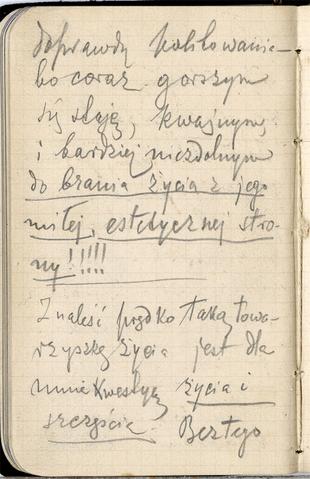 doprawdy politowanie –
bo coraz gorszym
się staję, kwaśnym,
i bardziej niezdolnym
do brania życia z jego
miłej, estetycznej stro-
ny!!!!!
Znaleść prędko taką towa-
rzyszkę życia jest dla
mnie kwestyą życia i
szczęścia. Bez tego